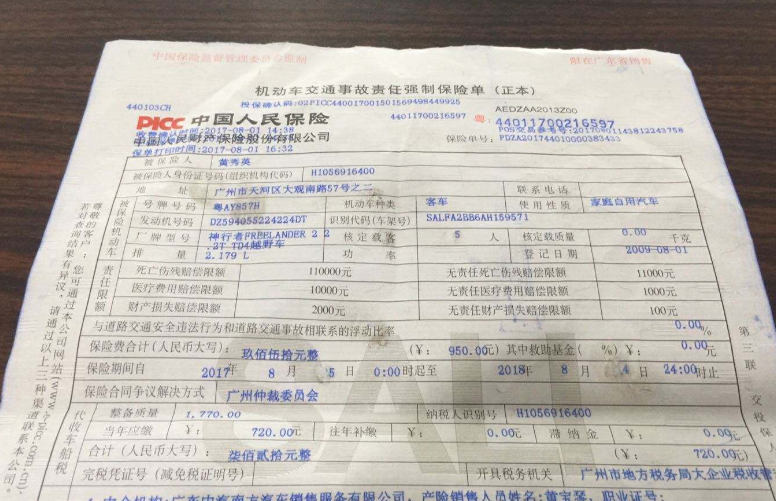 中国保险监督管理委员会监制
限在广东省销售
机动车交通事故责任强制保险单（正本）
440103CH
投保确认码:02PICC440017001501569498449925
AEDZAA2013Z00
PICC 中国人民保险
44011700216597
粤: 44011700216597
收费确认时间:2017-08-01 14:38
POS交易参考号:20170801143812243758
中国人民财产保险股份有限公司
保险单号: PDZA201744010000383433
保单打印时间:2017-08-01 16:32
被保险人 黄秀英
被保险人身份证号码(组织机构代码) H1056916400
地 址 广州市天河区大观南路57号之二 联系电话
被保险机动车
号牌号码 粤AY857H 机动车种类 客车 使用性质 家庭自用汽车
发动机号码 DZ594055224224DT 识别代码(车架号) SALFA2BB6AH159571
厂牌型号 神行者FREELANDER 2 2.2T TD4越野车 核定载客 5 人 核定载质量 0.00 千克
排 量 2.179 L 功 率 登记日期 2009-08-01
责任限额
死亡伤残赔偿限额 110000元 无责任死亡伤残赔偿限额 11000元
医疗费用赔偿限额 10000元 无责任医疗费用赔偿限额 1000元
财产损失赔偿限额 2000元 无责任财产损失赔偿限额 100元
与道路交通安全违法行为和道路交通事故相联系的浮动比率 0.00%
保险费合计(人民币大写): 玖佰伍拾元整 (¥: 950.00元) 其中救助基金( %)¥: 0.00元
保险期间自 2017年 8 月 5 日 0:00时起至 2018年 8 月 4 日 24:00时止
保险合同争议解决方式 广州仲裁委员会
代收车船税
整备质量 1,770.00 纳税人识别号 H1056916400
当年应缴 ¥: 720.00元 往年补缴 ¥: 0.00元 滞纳金 ¥: 0.00元
合计(人民币大写): 柒佰贰拾元整 (¥: 720.00元)
完税凭证号(减免税证明号) 开具税务机关 广州市地方税务局大企业税收管
尊敬的客户：您可通过本公司网站(www.picc.com.cn)
若对查询结果有异议，请通过以上二种渠道联系本公司。
第三联 交投保人
SALI